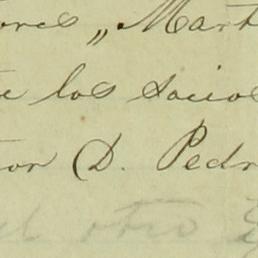 ores „Mart
e los socios
or D. Pedr
el otro